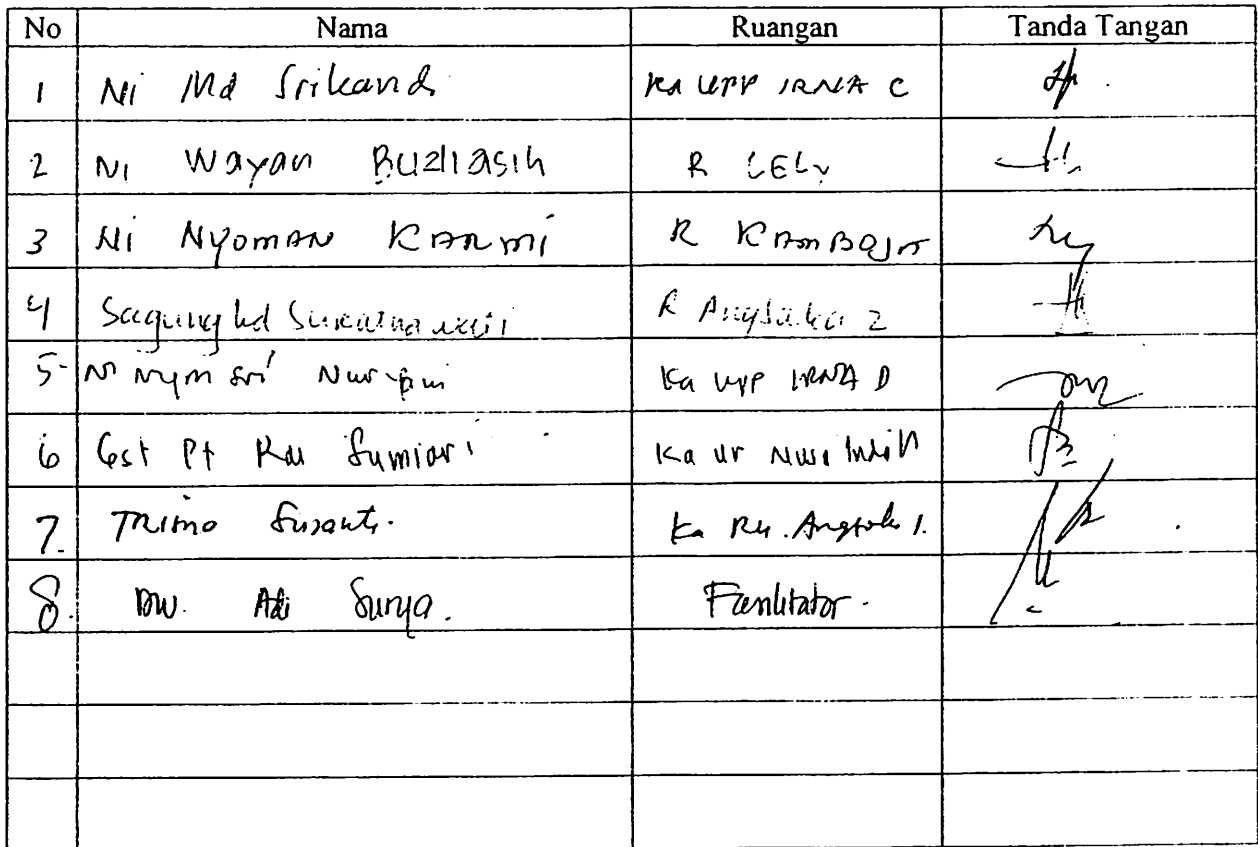 No Nama Ruangan Tanda Tangan
1 Ni Md Srikandi Ka UPP IRNA C
2 Ni Wayan Budiasih R LELY
3 Ni NyomAN KARmi R KAmBOjA
4 Sagung R Angsoka 2
5 Ni Nym Sri Nuryani Ka UPP IRNA D
6 Gst Pt Rai Sumiari Ka ur Nusa Indah
7. TRimo Susanti. Ka Ru. Angsoka 1.
8. DW. Adi Surya. Fasilitator.